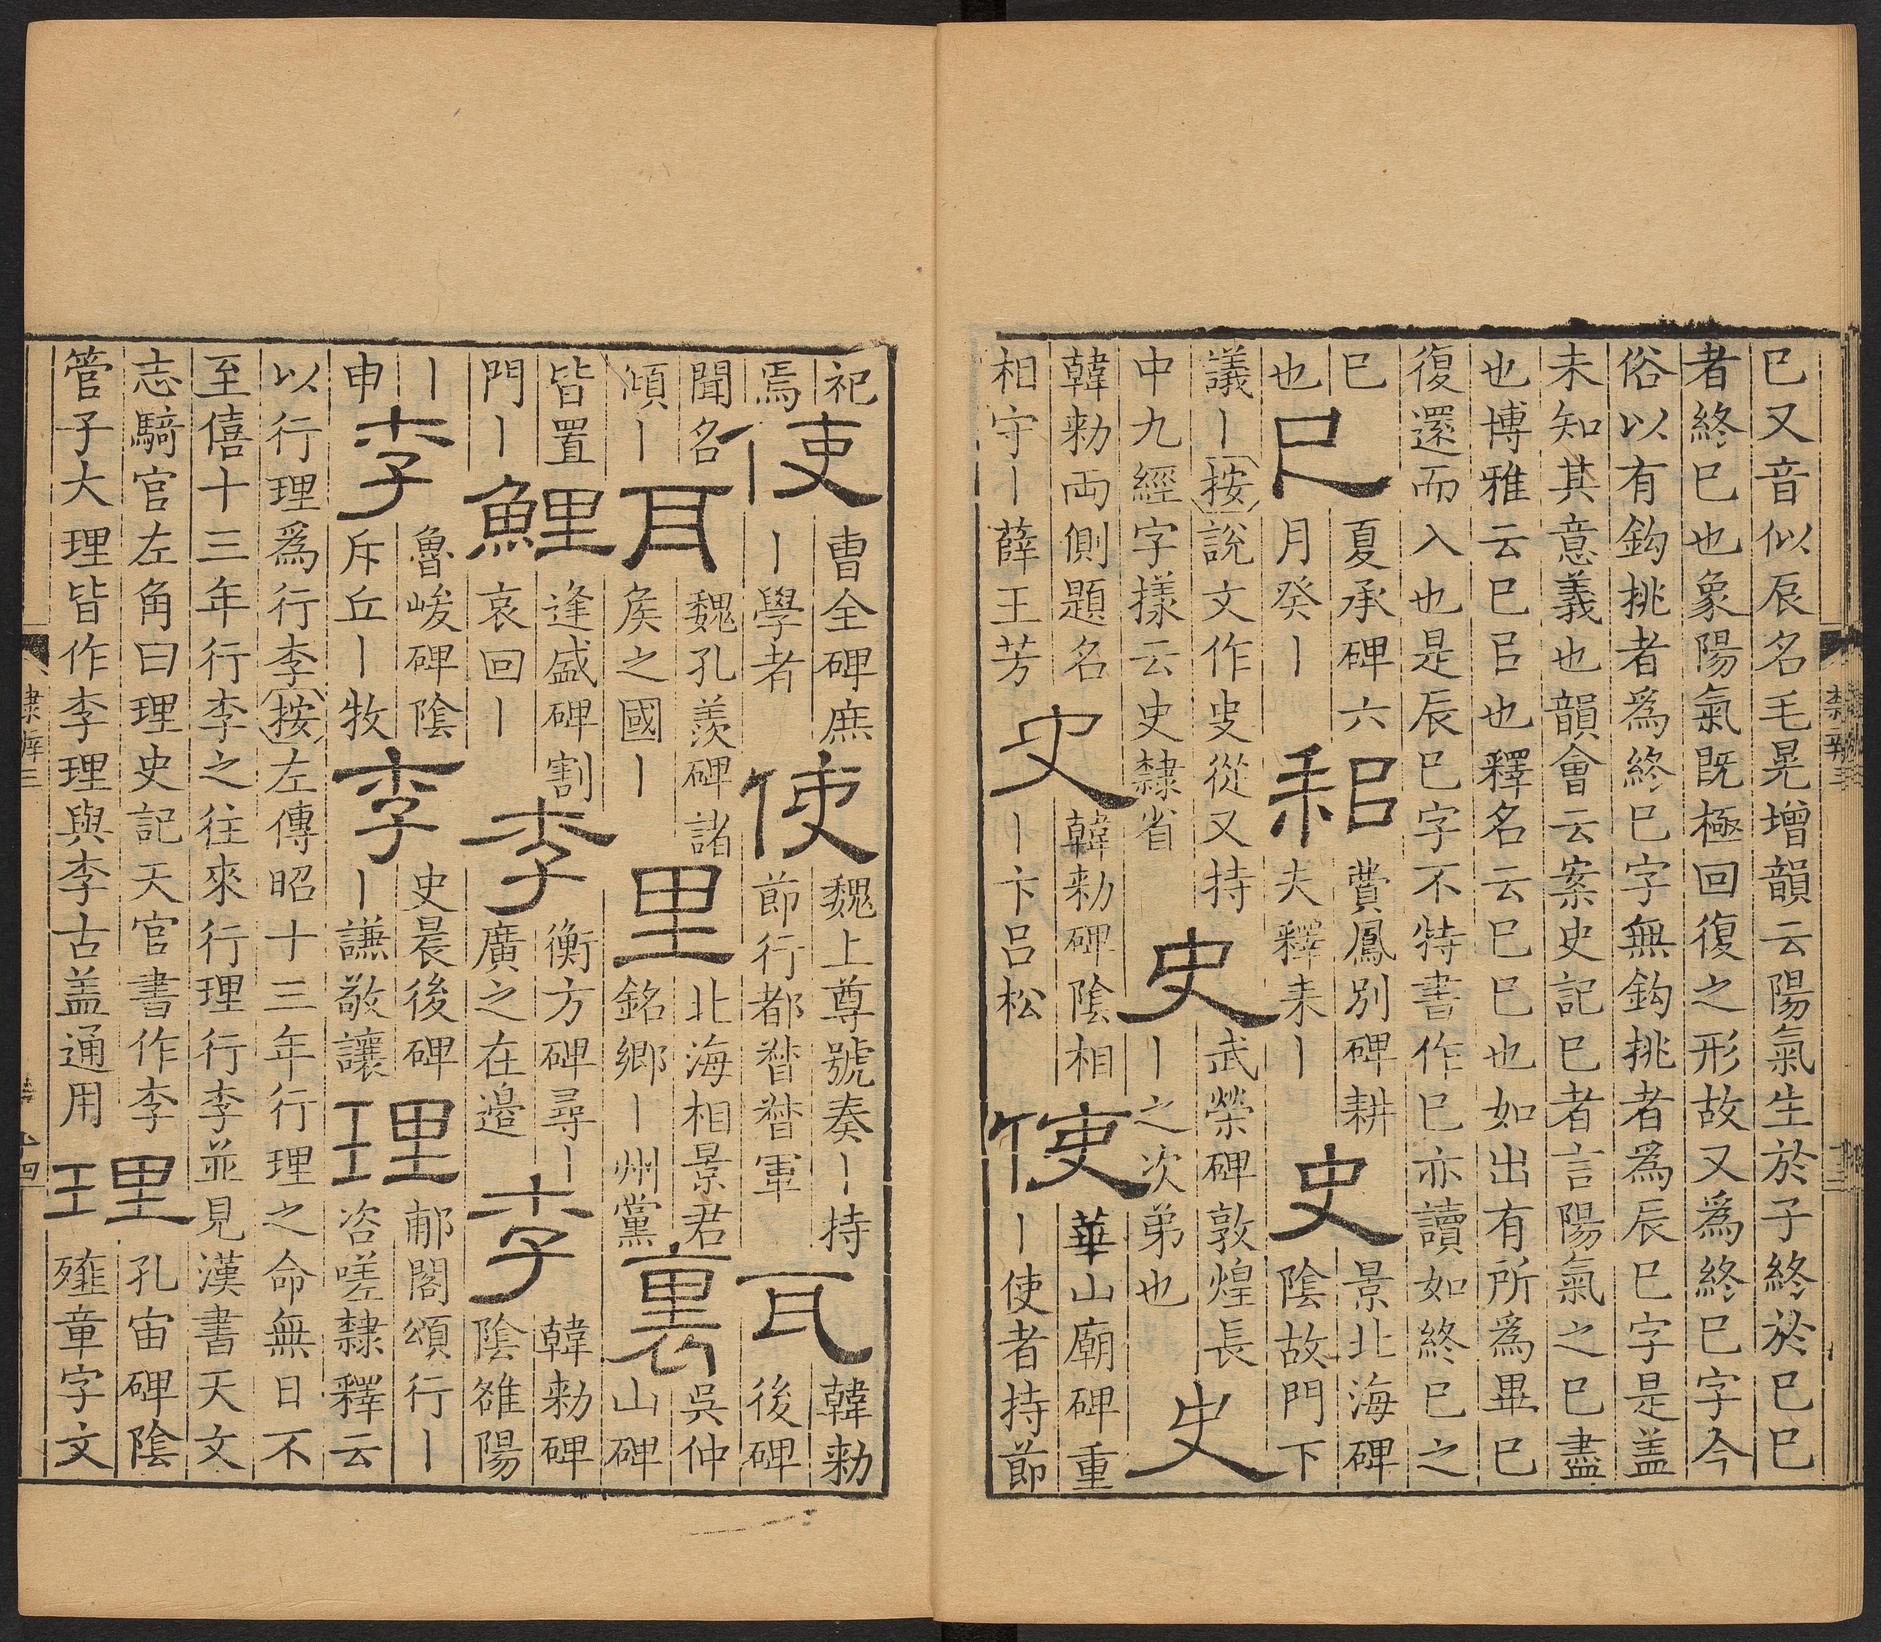 巳又音似辰名毛晃增韻云陽氣生於子終於巳巳
者終巳也象陽氣旣極回復之形故又爲終巳字今
俗以有鈎挑者爲終巳字無鈎挑者爲辰巳字是盖
未知其意義也韻會云案史記巳者言陽氣之巳盡
也博雅云巳㠯也釋名云巳巳也如出有所爲畢巳
復還而入也是辰巳字不特書作巳亦讀如終巳之
巳
也
巳
夏承碑六
月癸丨
耜
費鳳別碑耕
夫釋耒丨
史
景北海碑
陰故門下
議丨按說文作㕜從又持
中九經字樣云史隸省
史
武榮碑敦煌長
丨之次弟也
史
韓勑兩側題名
相守丨薛王芳
史
韓勑碑陰相
丨卞呂松
使
華山廟碑重
丨使者持節
祀
焉
使
曹全碑庶
丨學者
使
魏上尊號奏丨持
節行都督督軍
耳
韓勑
後碑
聞名
傾丨
耳
魏孔羨碑諸
矦之國丨
里
北海相景君
銘鄉丨州黨
裏
吳仲
山碑
皆置
門丨
鯉
逢盛碑割
哀回丨
李
衡方碑尋丨
廣之在邉
李
韓勑碑
陰雒陽
丨
申
李
魯峻碑陰
斥丘丨牧
李
史晨後碑
丨謙敬讓
理
郙閣頌行丨
咨嗟隸釋云
以行理爲行李按左傳昭十三年行理之命無日不
至僖十三年行李之往來行理行李並見漢書天文
志騎官左角曰理史記天官書作李
管子大理皆作李理與李古盖通用
理
孔宙碑陰
䧹童字文
隸辨三